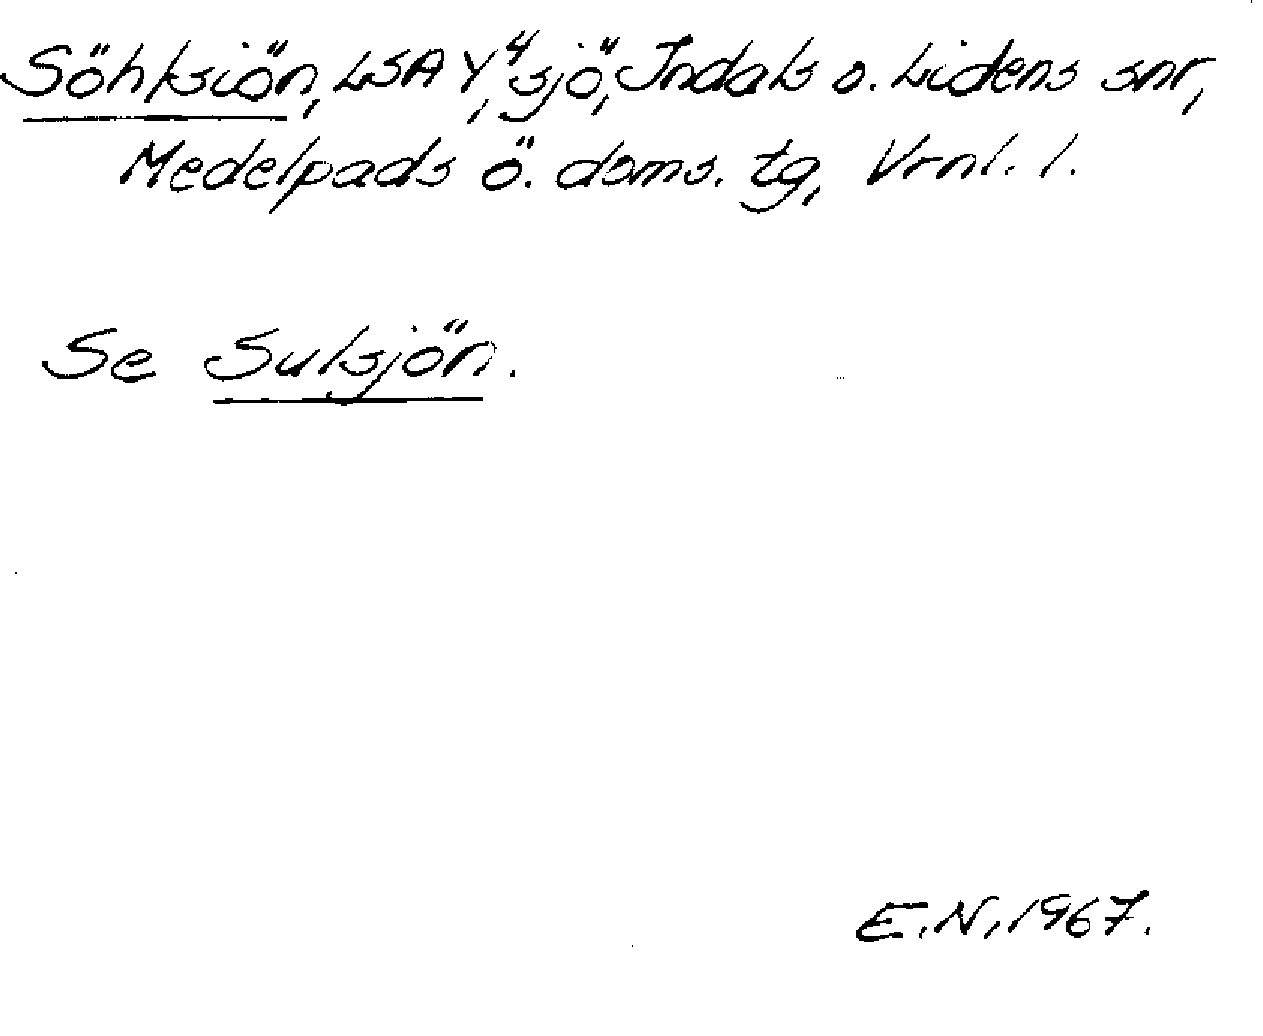 Söhksiön, LSA Y4, sjö, Indals o. Lidens snr,
Medelpads ö. doms. tg, Vrnl. l.
Se Sulsjön.
E.N, 1967.